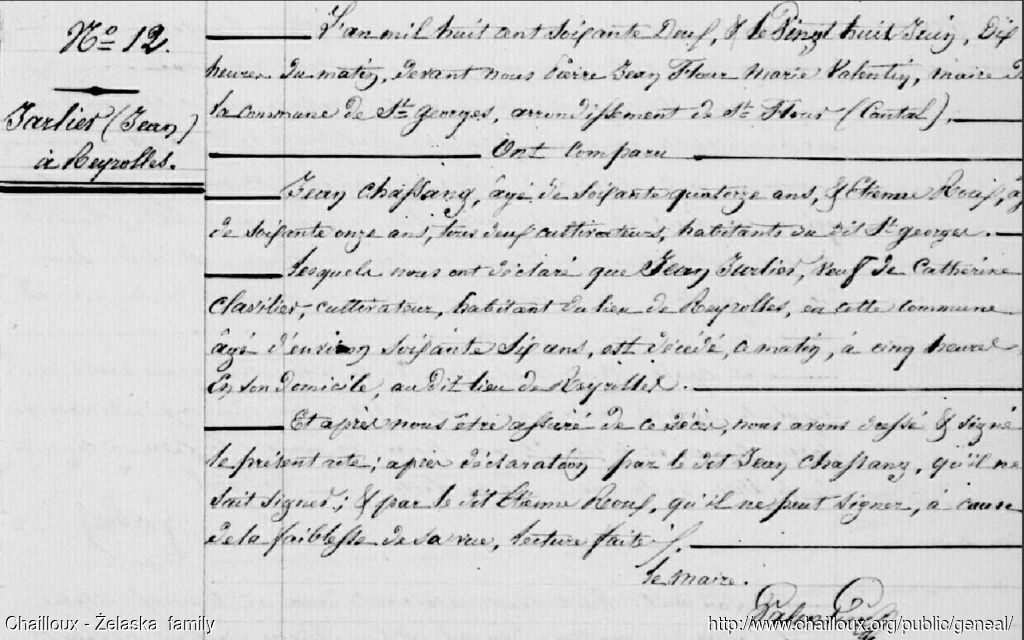 N° 12.
Jarlier (Jean)
à Reyrolles.
L'an mil huit cent soixante Deux, & le Vingt huit Juin, Dix
heures du matin, devant nous Pierre Jean Flour Marie Valentin, maire de
la commune de St georges, arrondissement de St Flour (Cantal),
Ont Comparu
Jean Chassang, âgé de soixante quatorze ans, & Etienne Roux, â
de soixante onze ans, tous deux cultivateurs, habitants du dit St georges.
Lesquels nous ont déclaré que Jean Jarlier, veuf de Catherine
Clavilier, cultivateur, habitant du lieu de Reyrolles, en cette commune
âgé d'environ soixante six ans, est décédé, ce matin, à cinq heures
En son domicile, au dit lieu de Reyrolles.
Et après nous être assuré de ce décès, nous avons dressé & signé
le présent acte; après déclaration par le dit Jean Chassang, qu'il ne
sait signer; & par le dit Etienne Roux, qu'il ne peut signer, à cause
de la faiblesse de sa vue, lecture faite
le maire.
Valentin
Chailloux - Želaska family
http://www.chailloux.org/public/geneal/